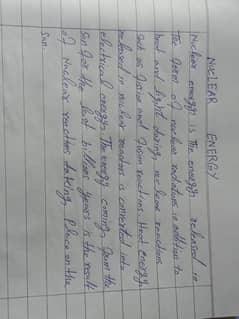 NUCLEAR ENERGY
Nuclear energy is the energy released in
the form of nuclear radiations in addition to
heat and light during nuclear reactions
such as fusion and fission reactions. Heat energy
released in nuclear reactions is converted into
electrical energy. The energy coming from the
Sun for the last billions years is the result
of Nuclear reaction taking Place on the
Sun.